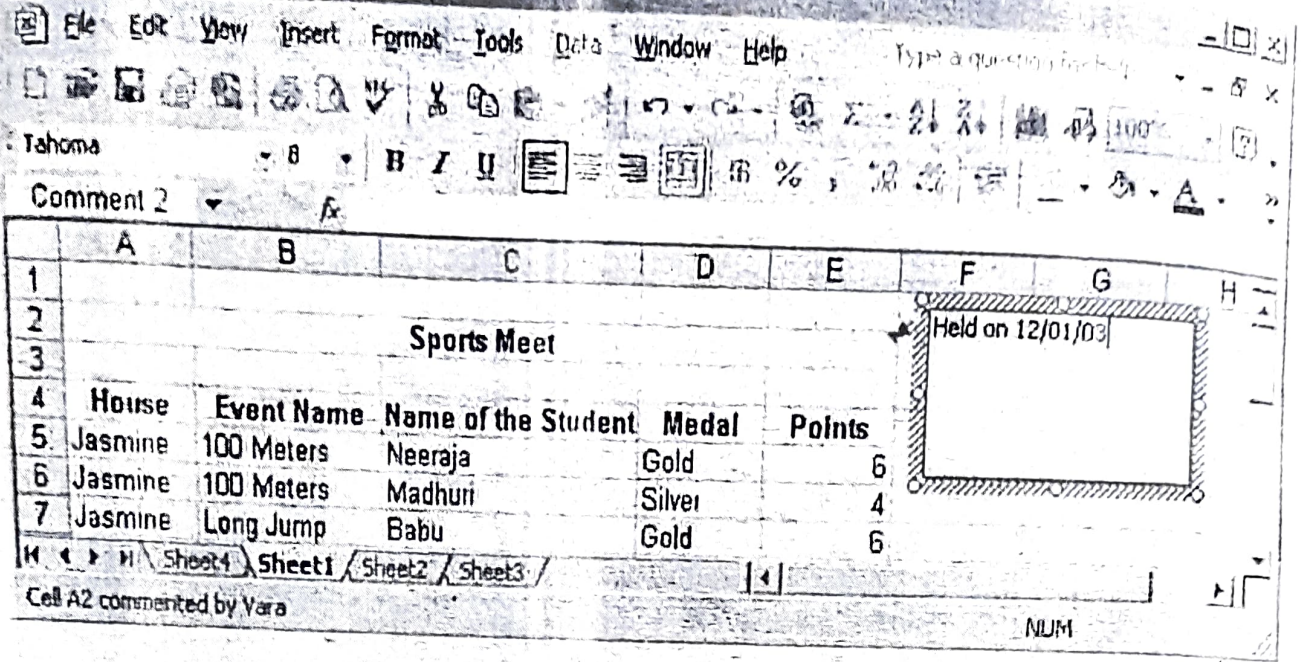 File Edit View Insert Format Tools Data Window Help Type a question for help
100%
Tahoma 8 B I U % ,
Comment 2 fx
A B C D E F G H
1
2 Sports Meet Held on 12/01/03
3
4 House Event Name Name of the Student Medal Points
5 Jasmine 100 Meters Neeraja Gold 6
6 Jasmine 100 Meters Madhuri Silver 4
7 Jasmine Long Jump Babu Gold 6
Sheet4 Sheet1 Sheet2 Sheet3
Cell A2 commented by Vara NUM